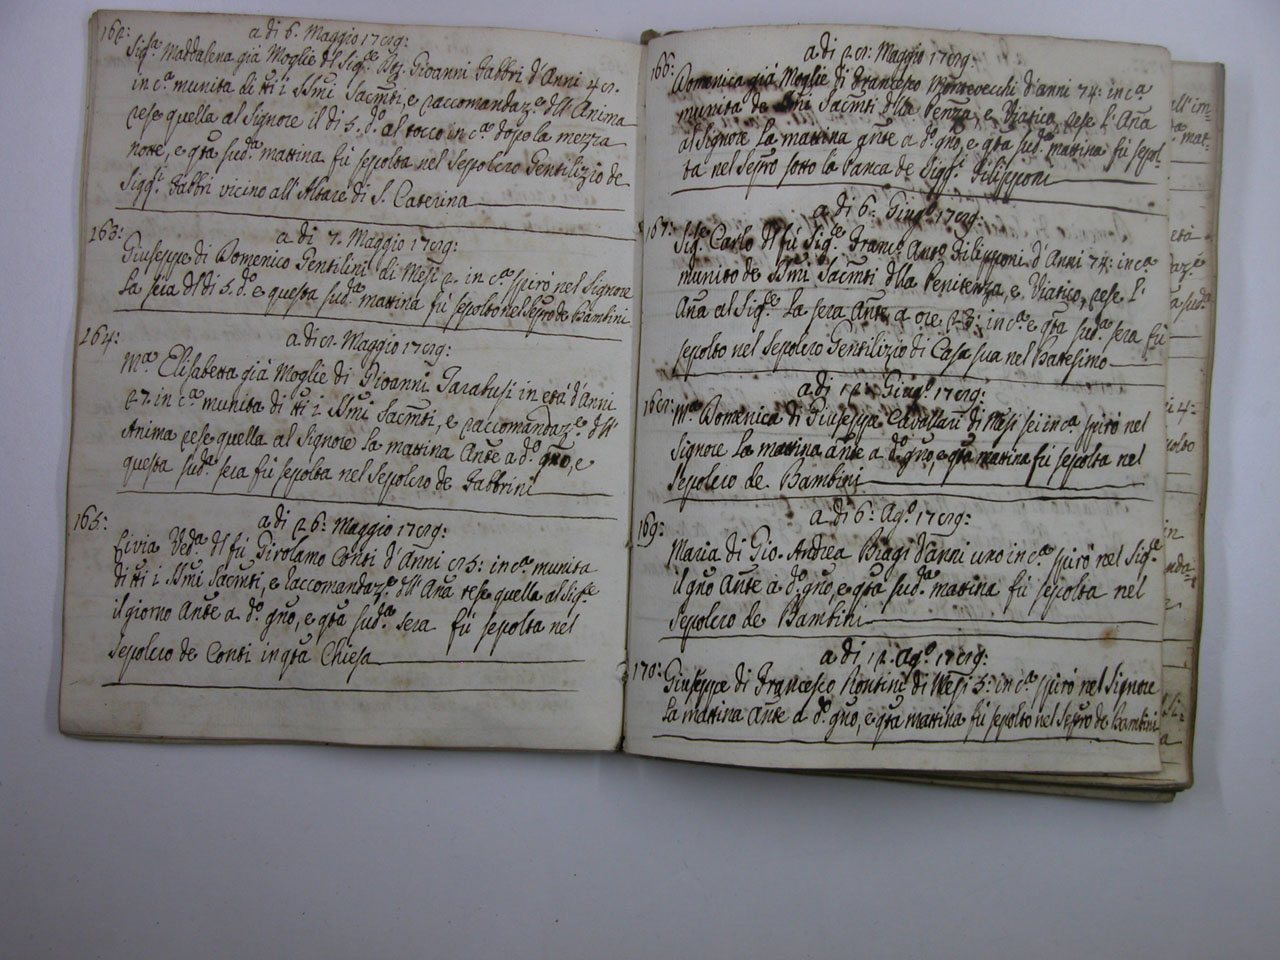 162:
a di 6. Maggio 1789:
Sig.ra Maddalena già Moglie del Sig.re Gioanni Fabbri d'Anni 48.
in c.a munita di tti i SSmi Sacmti, e raccomandaz.e dell'Anima
rese quella al Signore il di 5. d.o al tocco in c.a dopo la mezza
notte, e qta sud.a mattina fù sepolta nel Sepolcro Gentilizio de
Sigg.i Fabbri vicino all'Altare di S. Caterina
163:
a di 7. Maggio 1789:
Giuseppe di Domenico Gentilini di Mesi 2. in c.a spirò nel Signore
La sera del di 5. d.o e questa sud.a mattina fù sepolto nel Sepro de Bambini
164:
a di 8. Maggio 1789:
M.a Elisabetta già Moglie di Gioanni Tarabusi in età d'Anni
27. in c.a munita di tti i SSmi Sacmti, e raccomandaz.e dell'
Anima rese quella al Signore La mattina Ante a d.o gno, e
questa sud.a sera fù sepolta nel Sepolcro de Fabbrini
165:
a di 26: Maggio 1789:
Livia Ved.a del fù Girolamo Conti d'Anni 85: in c.a munita
di tti i SSmi Sacmti, e raccomandaz.e dell'Ana rese quella al Sig.re
il giorno Ante a d.o gno, e qta sud.a sera fù sepolta nel
Sepolcro de Conti in qta Chiesa
166:
a di 28: Maggio 1789:
Domenica già Moglie di Francesco Montevecchi d'anni 74: in c.a
munita de SSmi Sacmti della Penza, e Viatico, rese l'Ana
al Signore La mattina ante a d.o gno, e qta sud.a mattina fù sepol-
ta nel Sepro sotto la banca de Sigg.i Filipponi
167:
a di 6: Giug.o 1789:
Sig.e Carlo del fù Sig.e Franc.o Ant.o Filipponi d'Anni 74: in c.a
munito de SSmi Sacmti della Penitenza, e Viatico, rese l'
Ana al Sig.re La sera Ante a ore 23: in c.a e qta sud.a sera fù
sepolto nel Sepolcro Gentilizio di Casa sua nel Battesimo
168:
a di 12: Giug.o 1789:
M.a Domenica di Giuseppe Cavallari di Mesi sei in c.a spirò nel
Signore La mattina ante a d.o gno, e qta mattina fù sepolta nel
Sepolcro de Bambini
169:
a di 6: Ag.o 1789:
Maria di Gio. Andrea Biagi d'anni uno in c.a spirò nel Sig.e
il gno Ante a d.o gno, e qta sud.a mattina fù sepolta nel
Sepolcro de Bambini
170:
a di 12. Ag.o 1789:
Giuseppe di Francesco Rontini di Mesi 5: in c.a spirò nel Signore
La mattina Ante a d.o gno, e qta mattina fù sepolto nel Sepro de Bambini